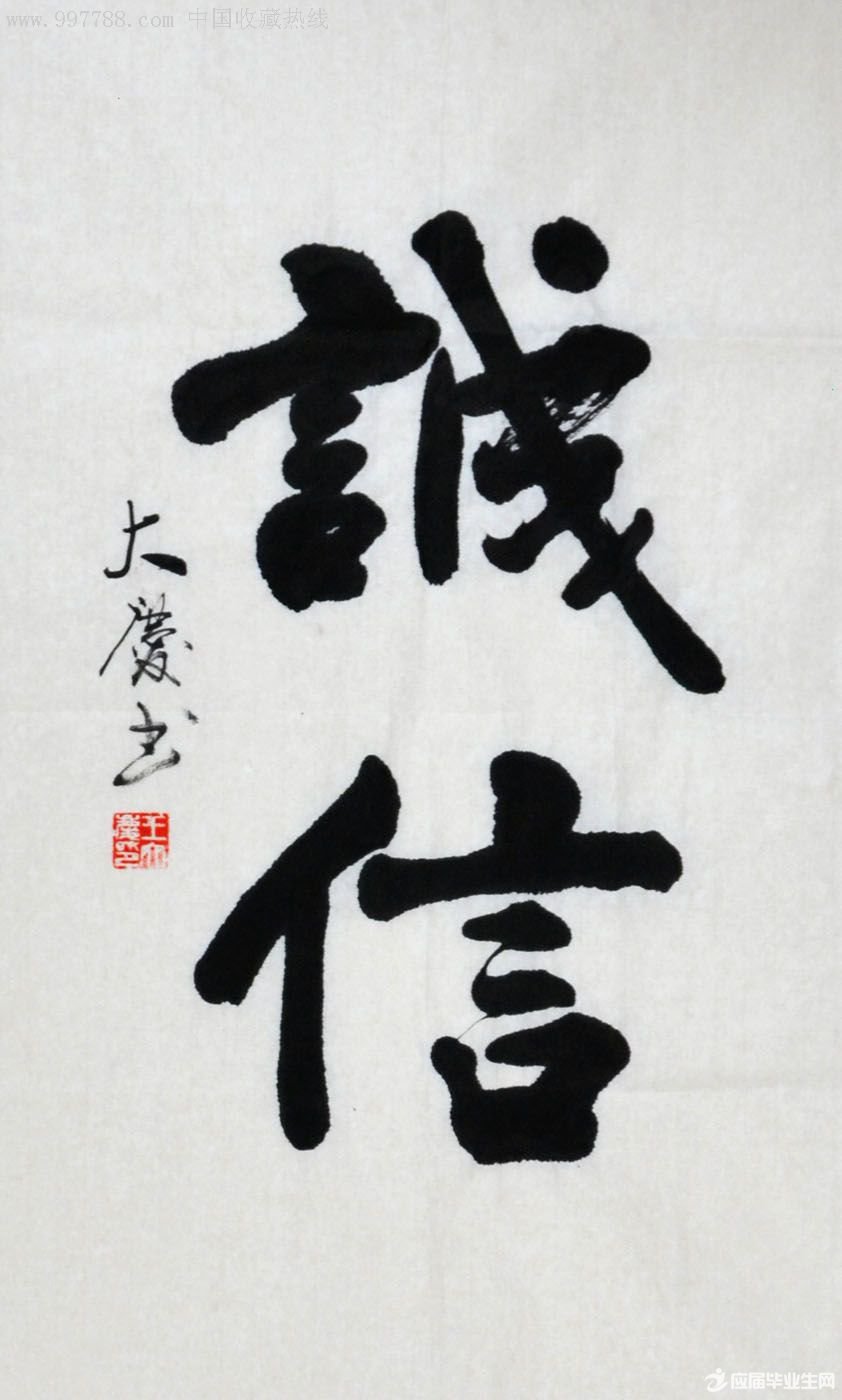 www.997788.com 中国收藏热线
誠信
大慶书
王大慶印
应届毕业生网